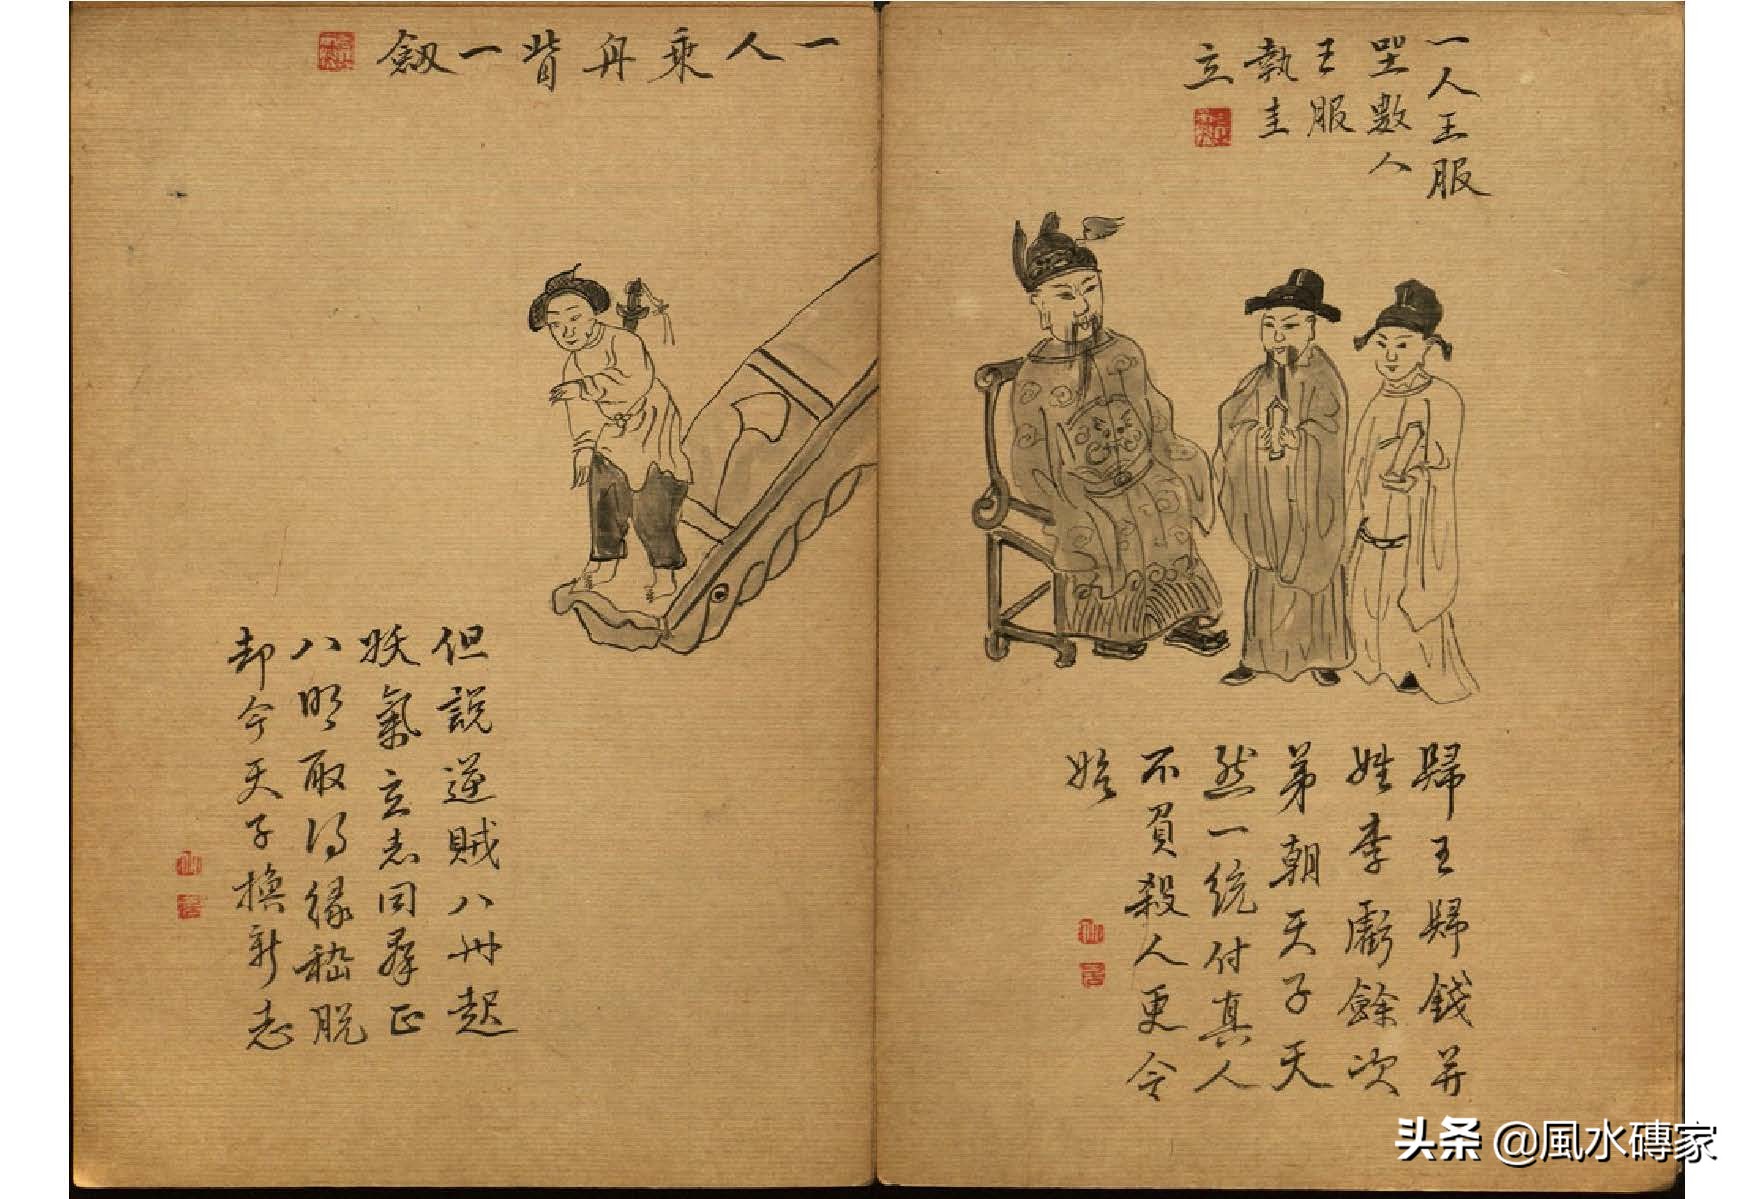 一人王服
坐數人
王服
執圭
立
歸王歸錢并
姓李虧餘次
第朝天子天
然一統付真人
不負殺人更令
始
一人乘舟背一劔
但說逆賊八州起
妖氣立志同羣正
八明取得緣脫
却令天子換新志
头条 @風水磚家